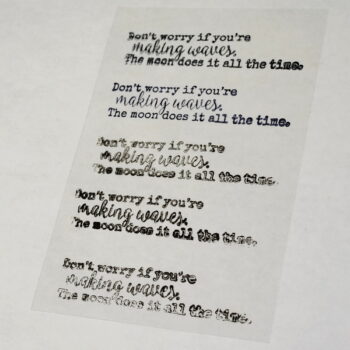 Don't worry if you're
making waves.
The moon does it all the time.
Don't worry if you're
making waves.
The moon does it all the time.
Don't worry if you're
making waves.
The moon does it all the time.
Don't worry if you're
making waves.
The moon does it all the time.
Don't worry if you're
making waves.
The moon does it all the time.